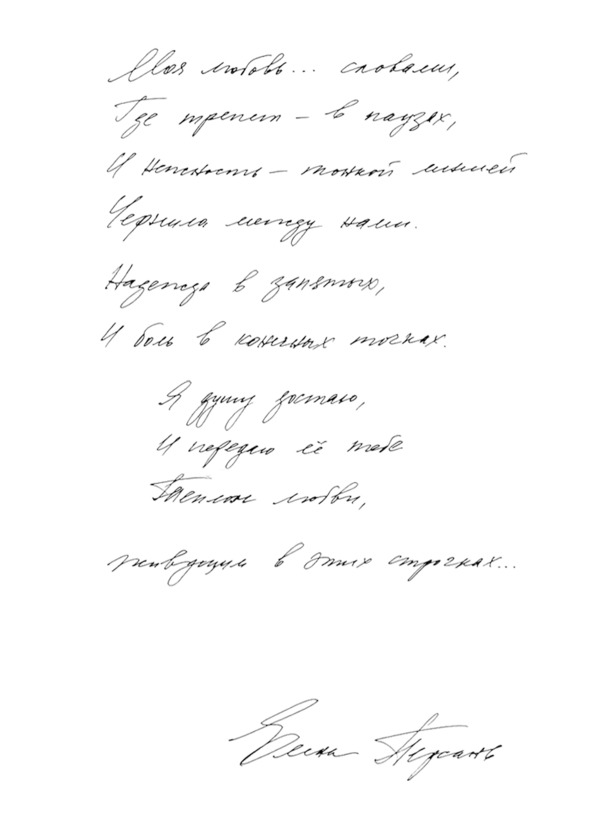 Моя любовь... словами,
Где трепет – в паузах,
И нежность – тонкой линией
Чернила между нами.
Надежда в запятых,
И боль в конечных точках.
Я душу достаю,
И передаю её тебе
Теплом любви,
живущим в этих строчках...
Елена